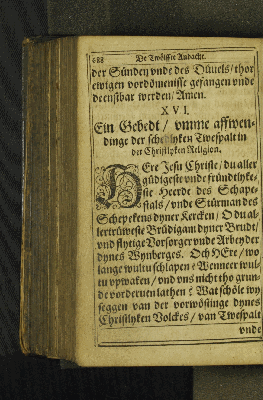 688 De Twölffte Andacht.
der Sünden vnde des Düuels/ thor
ewigen vordömenisse gefangen vnde
deenstbar werden/ Amen.
XVI.
Ein Gebedt/ vmme affwen-
dinge der schedlyken Twespalt in
der Christlyken Religion.
HEre Jesu Christe/ du aller
güdigeste vnde fründtlyke-
ste Heerde des Schape-
stals/ vnde Stürman des
Schepekens dyner Kercken/ O du al-
lertrüweste Brüdigam dyner Brudt/
vnd flytige Vorsorger vnde Arbeyder
dynes Wynberges. Och HEre/ wo
lange wultu schlapen? Wenneer wul-
tu vpwaken/ vnd vns nicht tho grun-
de vorderuen lathen? Wat schöle wy
seggen van der vorwöstinge dynes
Christlyken Volckes/ van Twespalt
vnde